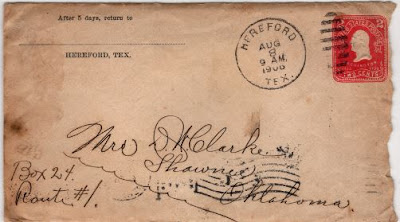 After 5 days, return to
HEREFORD, TEX.
HEREFORD
AUG
8
9 AM.
1906
TEX.
2
2
TWO CENTS
Mrs D H Clarke
Shawnee
Oklahoma
Box 24.
Route #1.